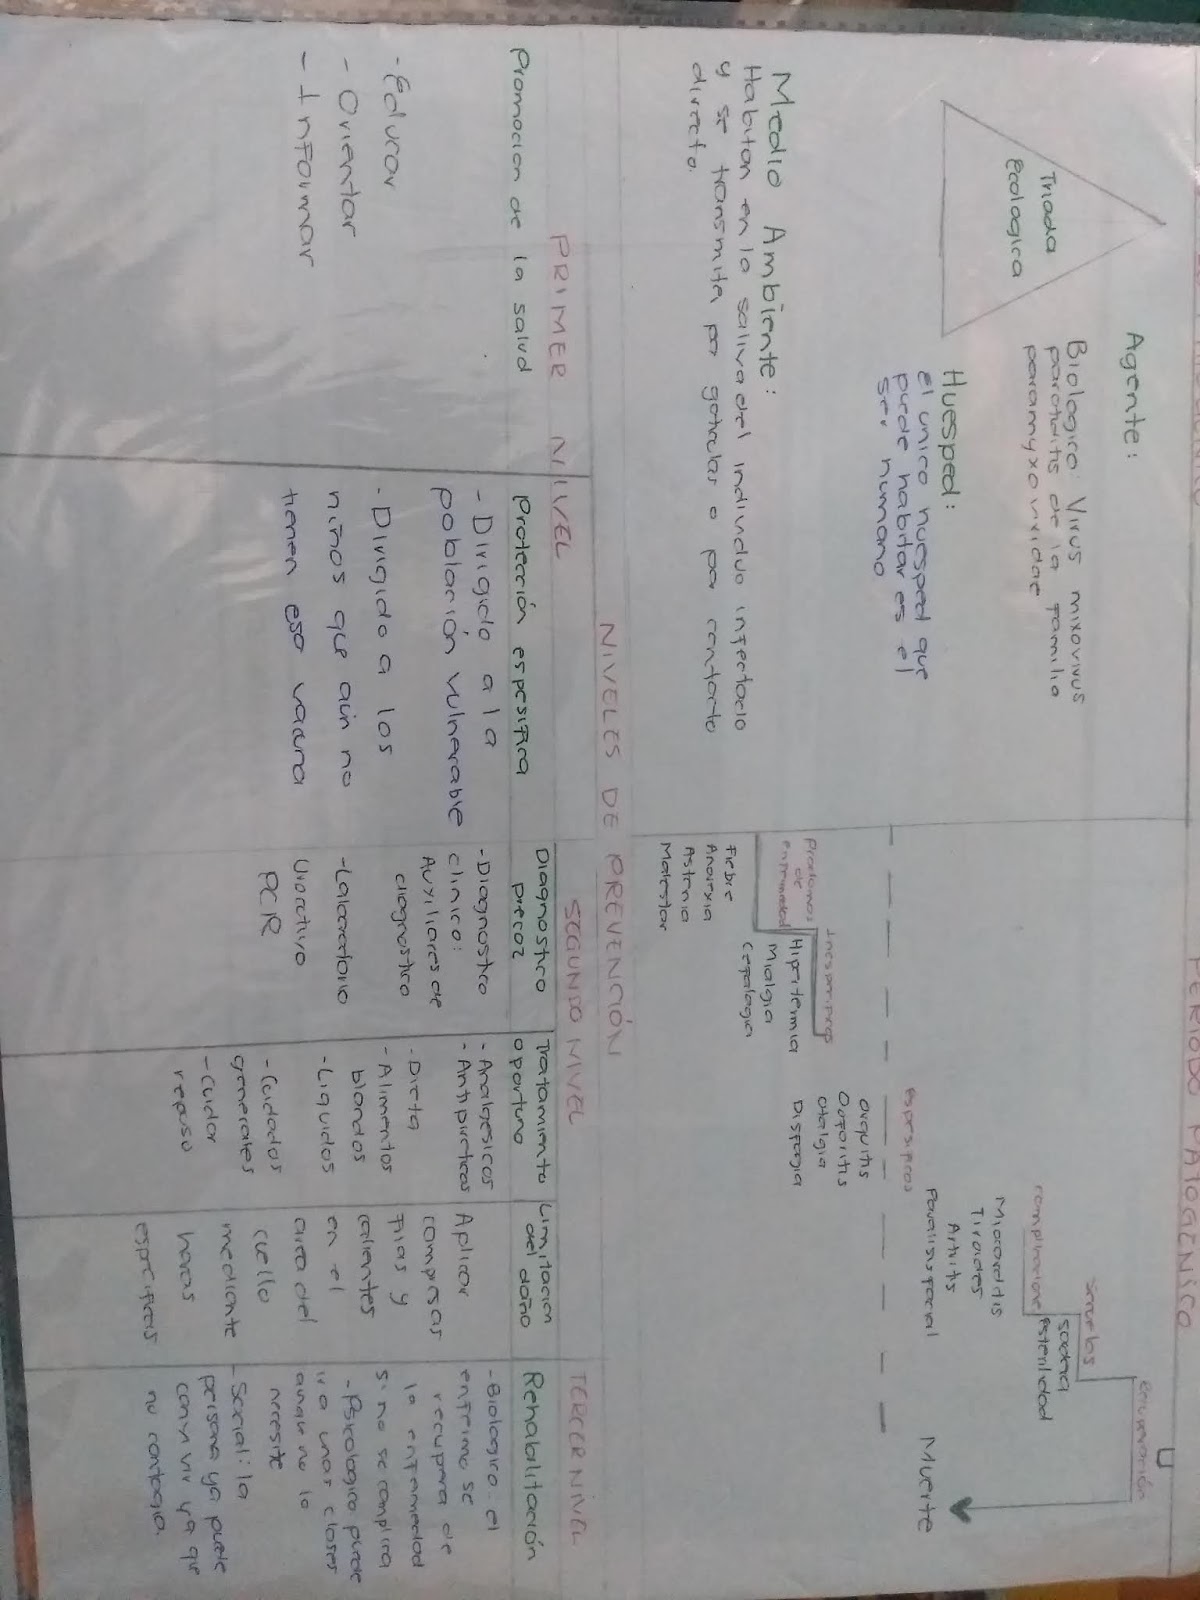 PERIODO PATOGENSCO
Triada
ecologica
Agente:
Biologico: Virus mixovivus
parotiditis de la familia
paramyxoviridae
Huesped:
el unico huesped que
puede habitar es el
ser humano
Medio Ambiente:
Habitan en la saliva del individuo infectado
y se transmite por gotitelas o por contacto
directo.
Prodomos
de
enfermedad
Fiebre
Anorexia
Astenia
Malestar
Hipertermia
Mialgia
Cefalagia
Orquitis
Ooforitis
Otalgia
Disfagia
Miocarditis
Tiroides
Artritis
Paralisis facial
Secuelas
sordera
esterilidad
Muerte
NIVELES DE PREVENCIÓN
PRIMER NIVEL
SEGUNDO NIVEL
TERCER NIVEL
Promocion de la salud
- Educar
- Orientar
- Informar
Protección espesifica
- Dirigido a la
población vulnerable
- Dirigido a los
niños que aún no
tienen esa vacuna
Diagnostico
precoz
- Diagnostico
clinico:
Auxiliares de
diagnostico
- Laboratorio
PCR
Tratamiento
oportuno
- Analgesicos
- Antipireticos
- Dieta
- Alimentos
blandos
- Liquidos
- Cuidados
generales
- Cuidar
reposo
Limitacion
del daño
Aplicar
compresas
frias y
calientes
en el
area del
cuello
mediante
horas
especificas
Rehabilitación
- Biologico: el
enfermo se
recupara de
la enfermedad
si no se complica
- Psicologico puede
ir a unas clases
aunque no lo
necesite
- Social: la
persona ya puede
convivir ya que
no contagia.